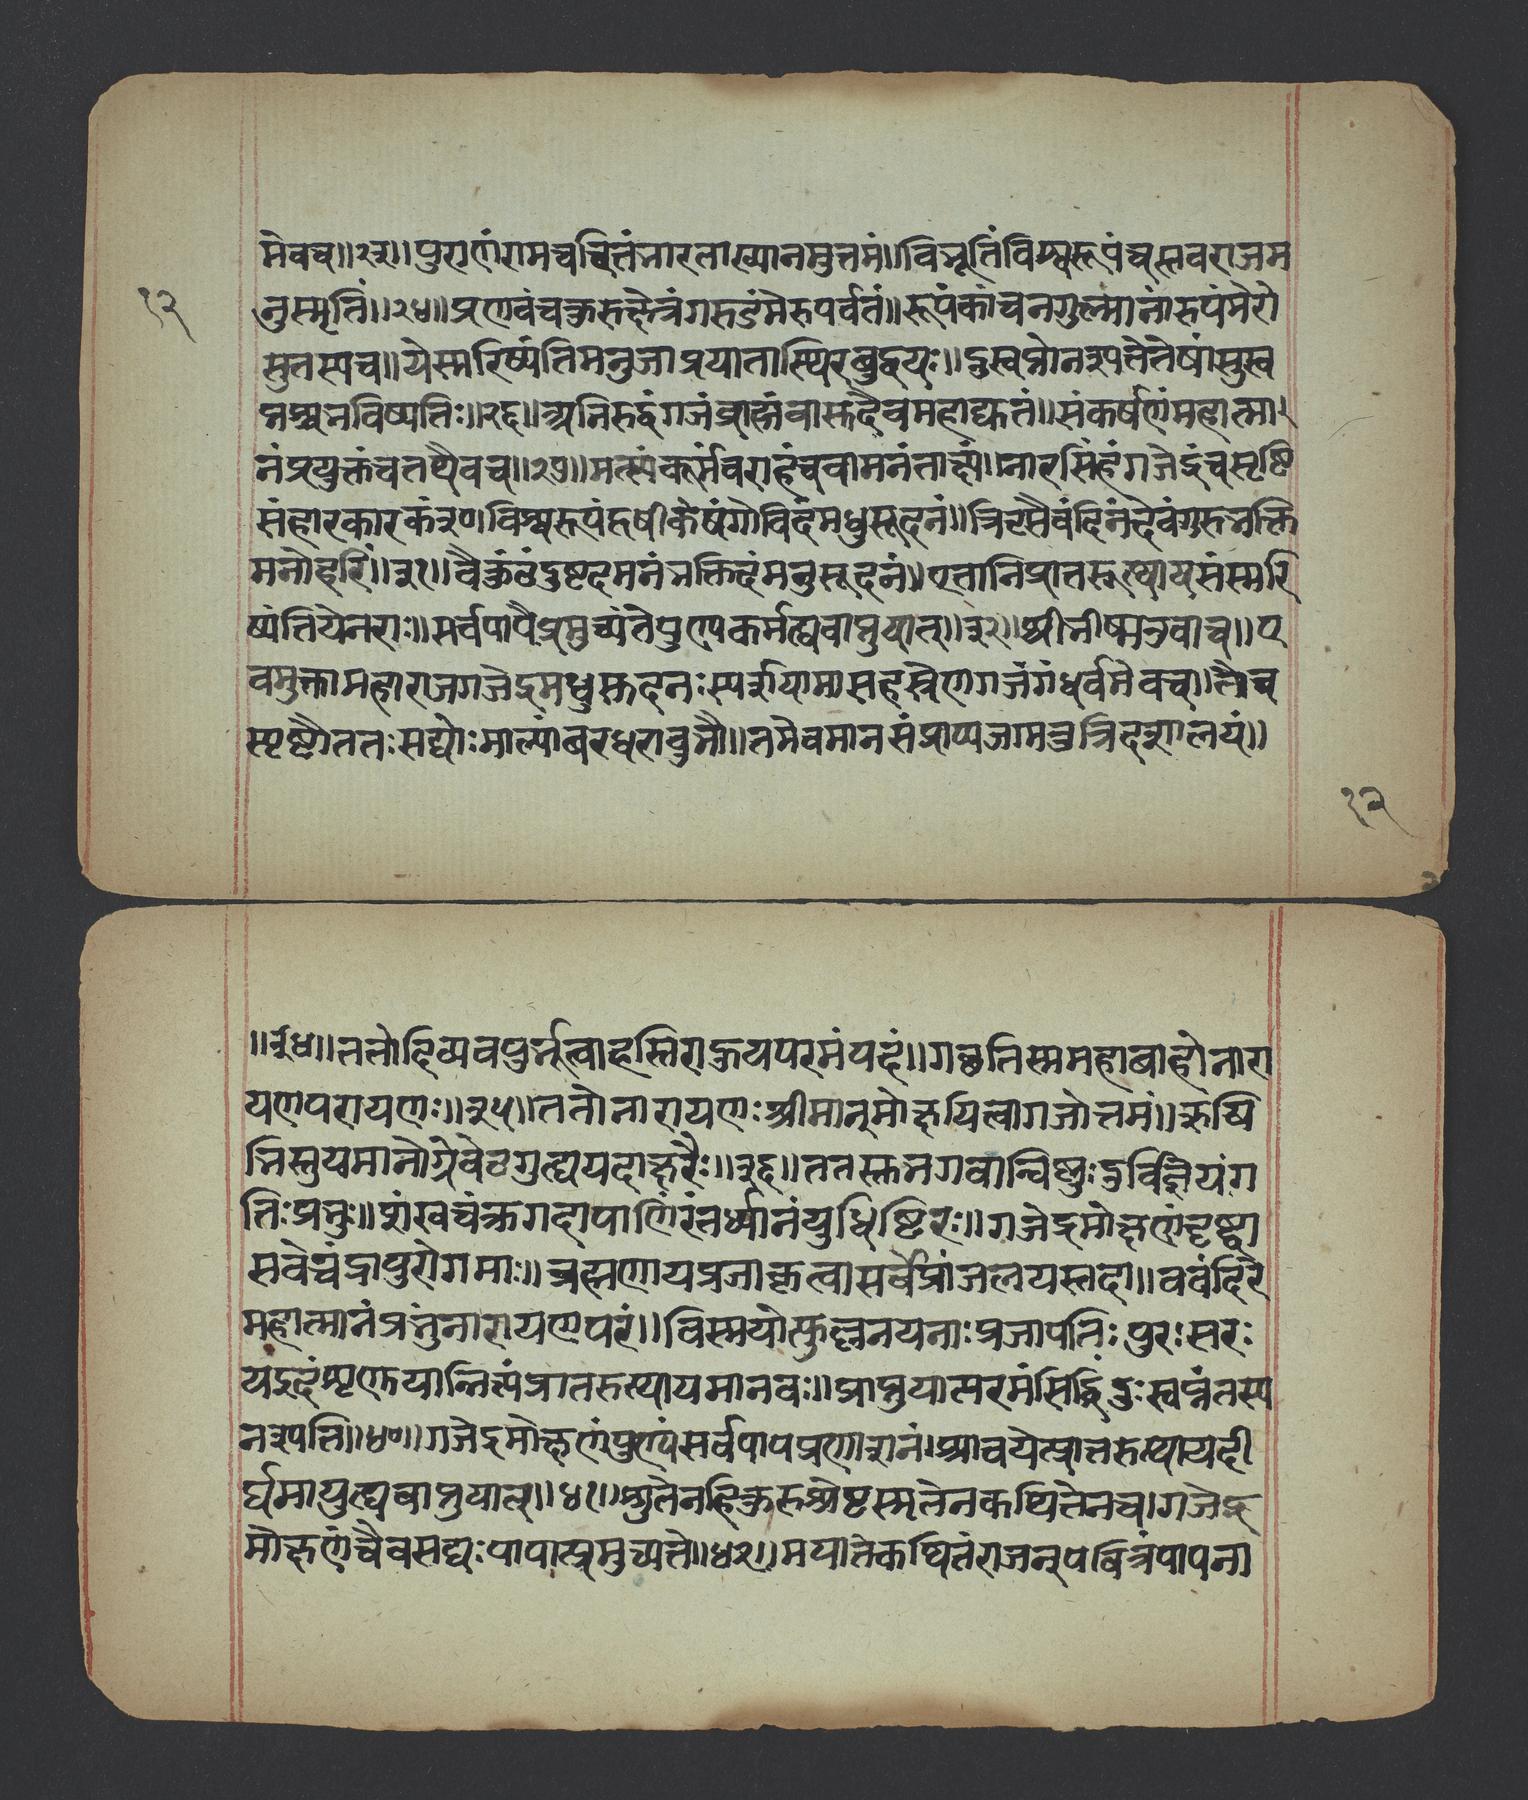 मेवच॥२३॥पुराणंरामचरितंभारताख्यानमुत्तमं॥विभूतिंविश्वरूपंचस्तवराजम
१२
नुस्मृतिं॥२४॥प्रणवंचकुरुक्षेत्रंगरुडंमेरुपर्वतं॥रूपंकांचनगुल्मानांरुपंमेरो
सुतस्यच॥येस्मरिष्यंतिमनुजाप्रयातास्थिरबुद्धयः॥दुस्वप्नोनश्यतेतेषांसुस्व
प्नश्चभविष्यतिः॥२६॥अनिरुद्धंगजंग्राहंवासुदेवमहाद्युतं॥संकर्षणंमहात्मा
नंप्रद्युक्तंचतथैवच॥२७॥मत्स्यंकूर्मंवराहंचवामनंतार्क्ष्यं॥नारसिंहंगजेंद्रंचसृष्टि
संहारकारकं३०विश्वरुपंहृषीकेषंगोविंदंमधुसूदनं॥त्रिदशैवंदितंदेवंगुरुभक्ति
मनोहरिं॥३१॥वैकुंठंदुष्टदमनंभक्तिदंमनुसूदनं॥एतानिप्रातरुत्थायसंस्मरि
ष्यंतियेनराः॥सर्वपापैप्रमुच्यंतेपुण्यकर्मत्यवाप्नुयात्॥३२॥श्रीभीष्मउवाच॥ए
वमुक्तामहाराजगजेंद्रमधुसूदनः स्पर्शयामासहस्तेणगजंगंधर्वमेवच॥तौच
स्पृष्टौततःसद्योःमाल्यांबरधरावुभौ॥तमेवमानसंप्राप्यजग्मतुत्रिदशालयं॥
१२
॥३४॥ततोदिव्यवपुर्भूत्वाहस्तिराट्जयपरमंपदं॥गच्छतिस्ममहाबाहोनारा
यणपरायणः॥३५॥ततोनारायणःश्रीमान्मोक्षयित्वागजोत्तमं॥ऋषि
भिस्तुयमानोग्रेवेदगुह्यपदाक्षरैः॥३६॥ततस्तभगवान्विष्णुःदुर्विज्ञेयंग
तिःप्रभुः॥शंखचंक्रगदापाणिंरंतर्ध्यानंयुधिष्टिरः॥गजेंद्रमोक्षणंदृष्ट्वा
सवेचंद्रापुरोगमाः॥ब्रह्मणायप्रजाकृत्वासर्वेप्रांजलयस्तदा॥ववंदिरे
महात्मानंप्रभुंनारायणपरं॥विस्मयोत्फुल्लनयनाःप्रजापतिःपुरःसरः
यइदंशृणुयान्नित्यंप्रातरुत्थायमानवः॥प्राप्नुयात्परमंसिद्धिंदुःस्वप्नंतस्य
नश्यति॥४०॥गजेंद्रमोक्षणंपुण्यंसर्वपापप्रणाशनं॥श्रावयेत्प्रातरुत्थायदी
र्घमायुत्यवाप्नुयात्॥४१॥श्रुतेनहिकुरुश्रेष्टस्मृतेनकथितेनच॥गजेंद्र
मोक्षणंचैवसद्यःपापात्प्रमुच्यते॥४२॥मयातेकथितंराजन्पवित्रंपापना